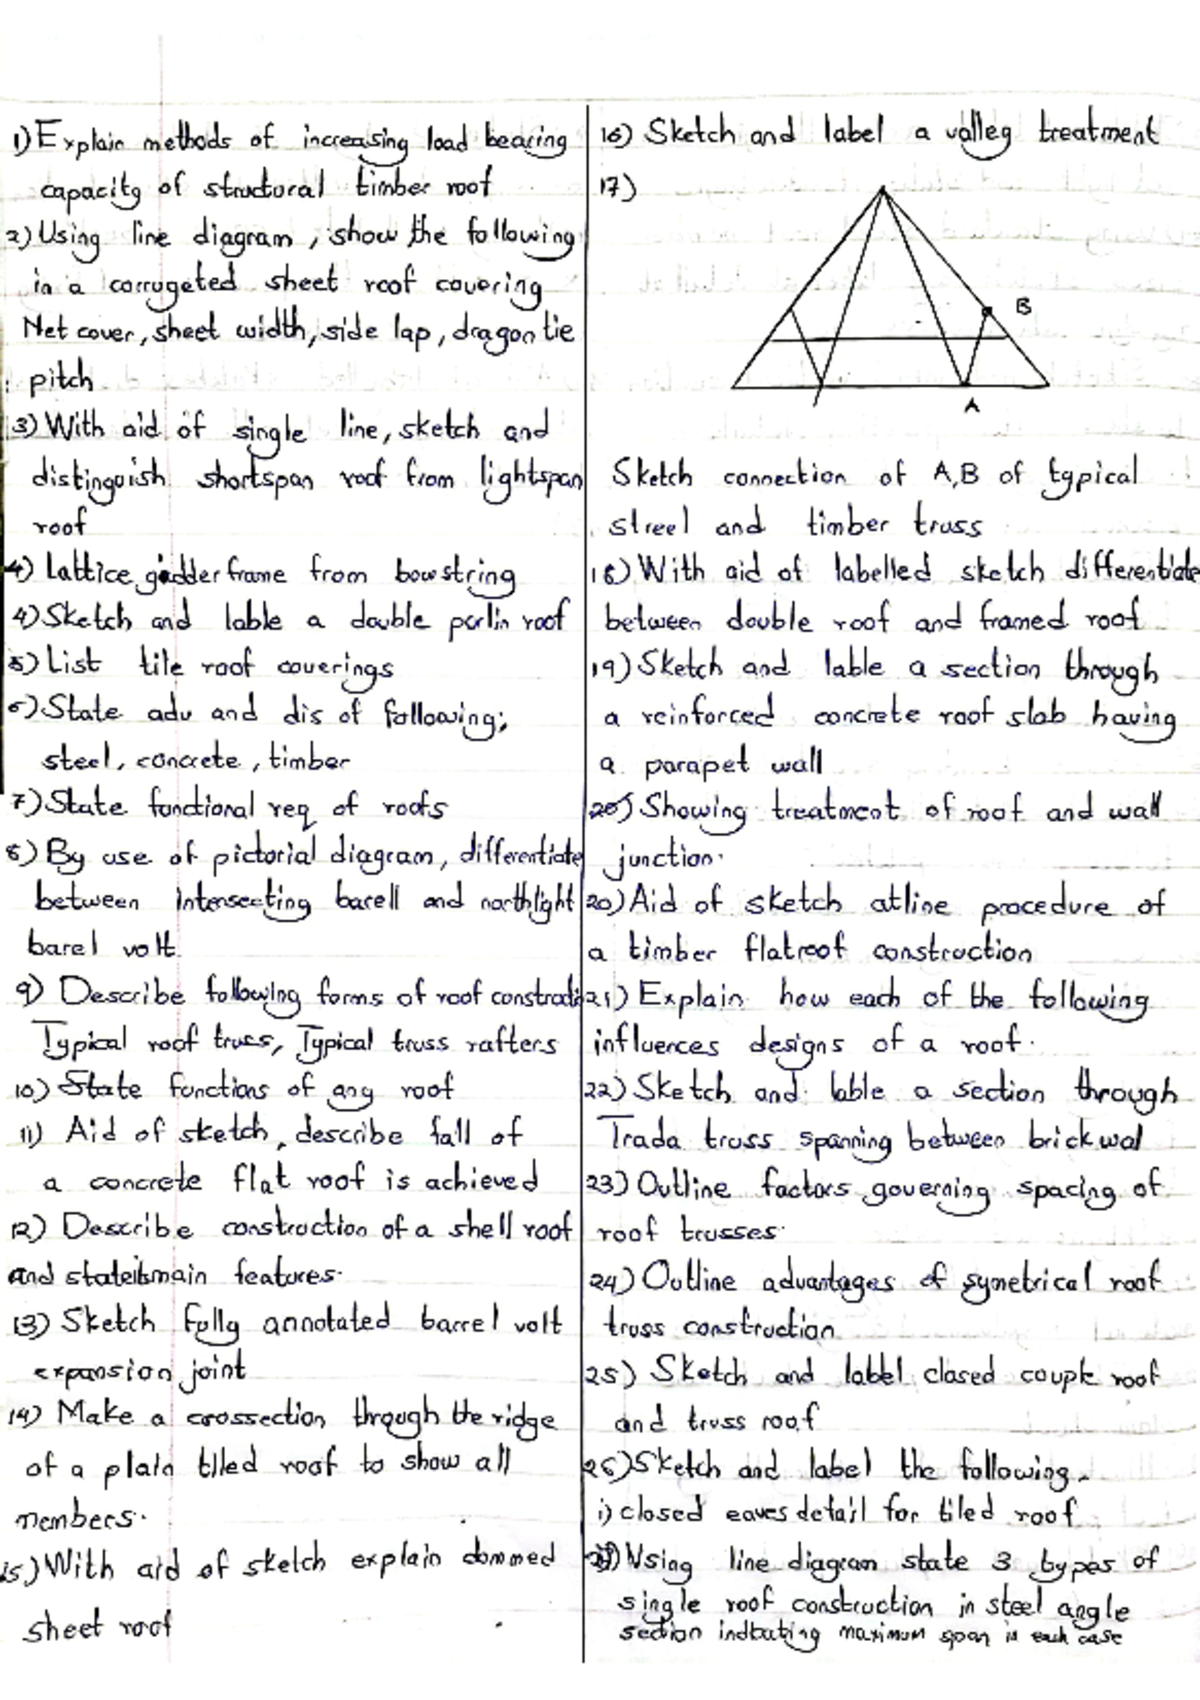 1) Explain methods of increasing load bearing
capacity of structural timber roof
2) Using line diagram, show the following
in a corrugeted sheet roof covering
Net cover, sheet width, side lap, dragon tie
pitch
3) With aid of single line, sketch and
distinguish shortspan roof from lightspan
roof
4) Lattice gidder frame from bowstring
4) Sketch and lable a double purlin roof
5) List tile roof coverings
6) State adv and dis of following;
steel, concrete, timber
7) State functional req of roofs
8) By use of pictorial diagram, differentiate
between intersecting barell and northlight
barel volt.
9) Describe following forms of roof constructi
Typical roof truss, Typical truss rafters
10) State functions of any roof
11) Aid of sketch, describe fall of
a concrete flat roof is achieved
12) Describe construction of a shell roof
and state its main features.
13) Sketch fully annotated barrel volt
expansion joint
14) Make a crossection through the ridge
of a plain tiled roof to show all
members.
15) With aid of sketch explain dommed
sheet roof
16) Sketch and label a valley treatment
17)
B
A
Sketch connection of A,B of typical
streel and timber truss
18) With aid of labelled sketch differentiate
between double roof and framed roof
19) Sketch and lable a section through
a reinforced concrete roof slab having
a parapet wall
20) Showing treatment of roof and wall
junction.
20) Aid of sketch atline procedure of
a timber flatroof construction
21) Explain how each of the following
influences designs of a roof.
22) Sketch and lable a section through
Trada truss spanning between brickwal
23) Outline factors governing spacing of
roof trusses.
24) Outline advantages of symetrical roof
truss construction
25) Sketch and label closed couple roof
and truss roof
26) Sketch and label the following.
i) closed eaves detail for tiled roof
Using line diagram state 3 types of
single roof construction in steel angle
section indicating maximum span in each case